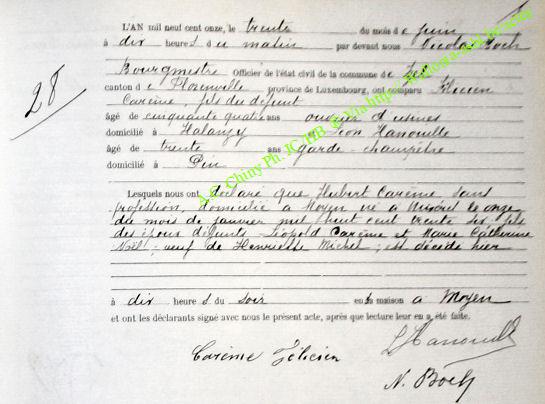 28
L'AN mil neuf cent onze, le trente du mois de juin
à dix heures du matin par devant nous Nicolas Boch
Bourgmestre Officier de l'état civil de la commune de
canton de province de Luxembourg, ont comparu
Carème, fils du défunt
âgé de cinquante quatre ans ouvrier d'usines
domicilié à Halanzy Léon Hanouille
âgé de trente ans garde-champêtre
domicilié à Pin
Lesquels nous ont déclaré que Hubert Carème sans
profession domicilié à Moyen né à le onze
du mois de janvier mil huit cent trente six, fils
des époux défunts Léopold Carème et Marie Catherine
Noël, veuf de Henriette Michel, est décédé hier
à dix heures du soir en sa maison à Moyen
et ont les déclarants signé avec nous le présent acte, après que lecture leur en a été faite.
Carème Félicien L. Hanouille
N. Boch
A.C. Chiny Ph. JC HB @ Via